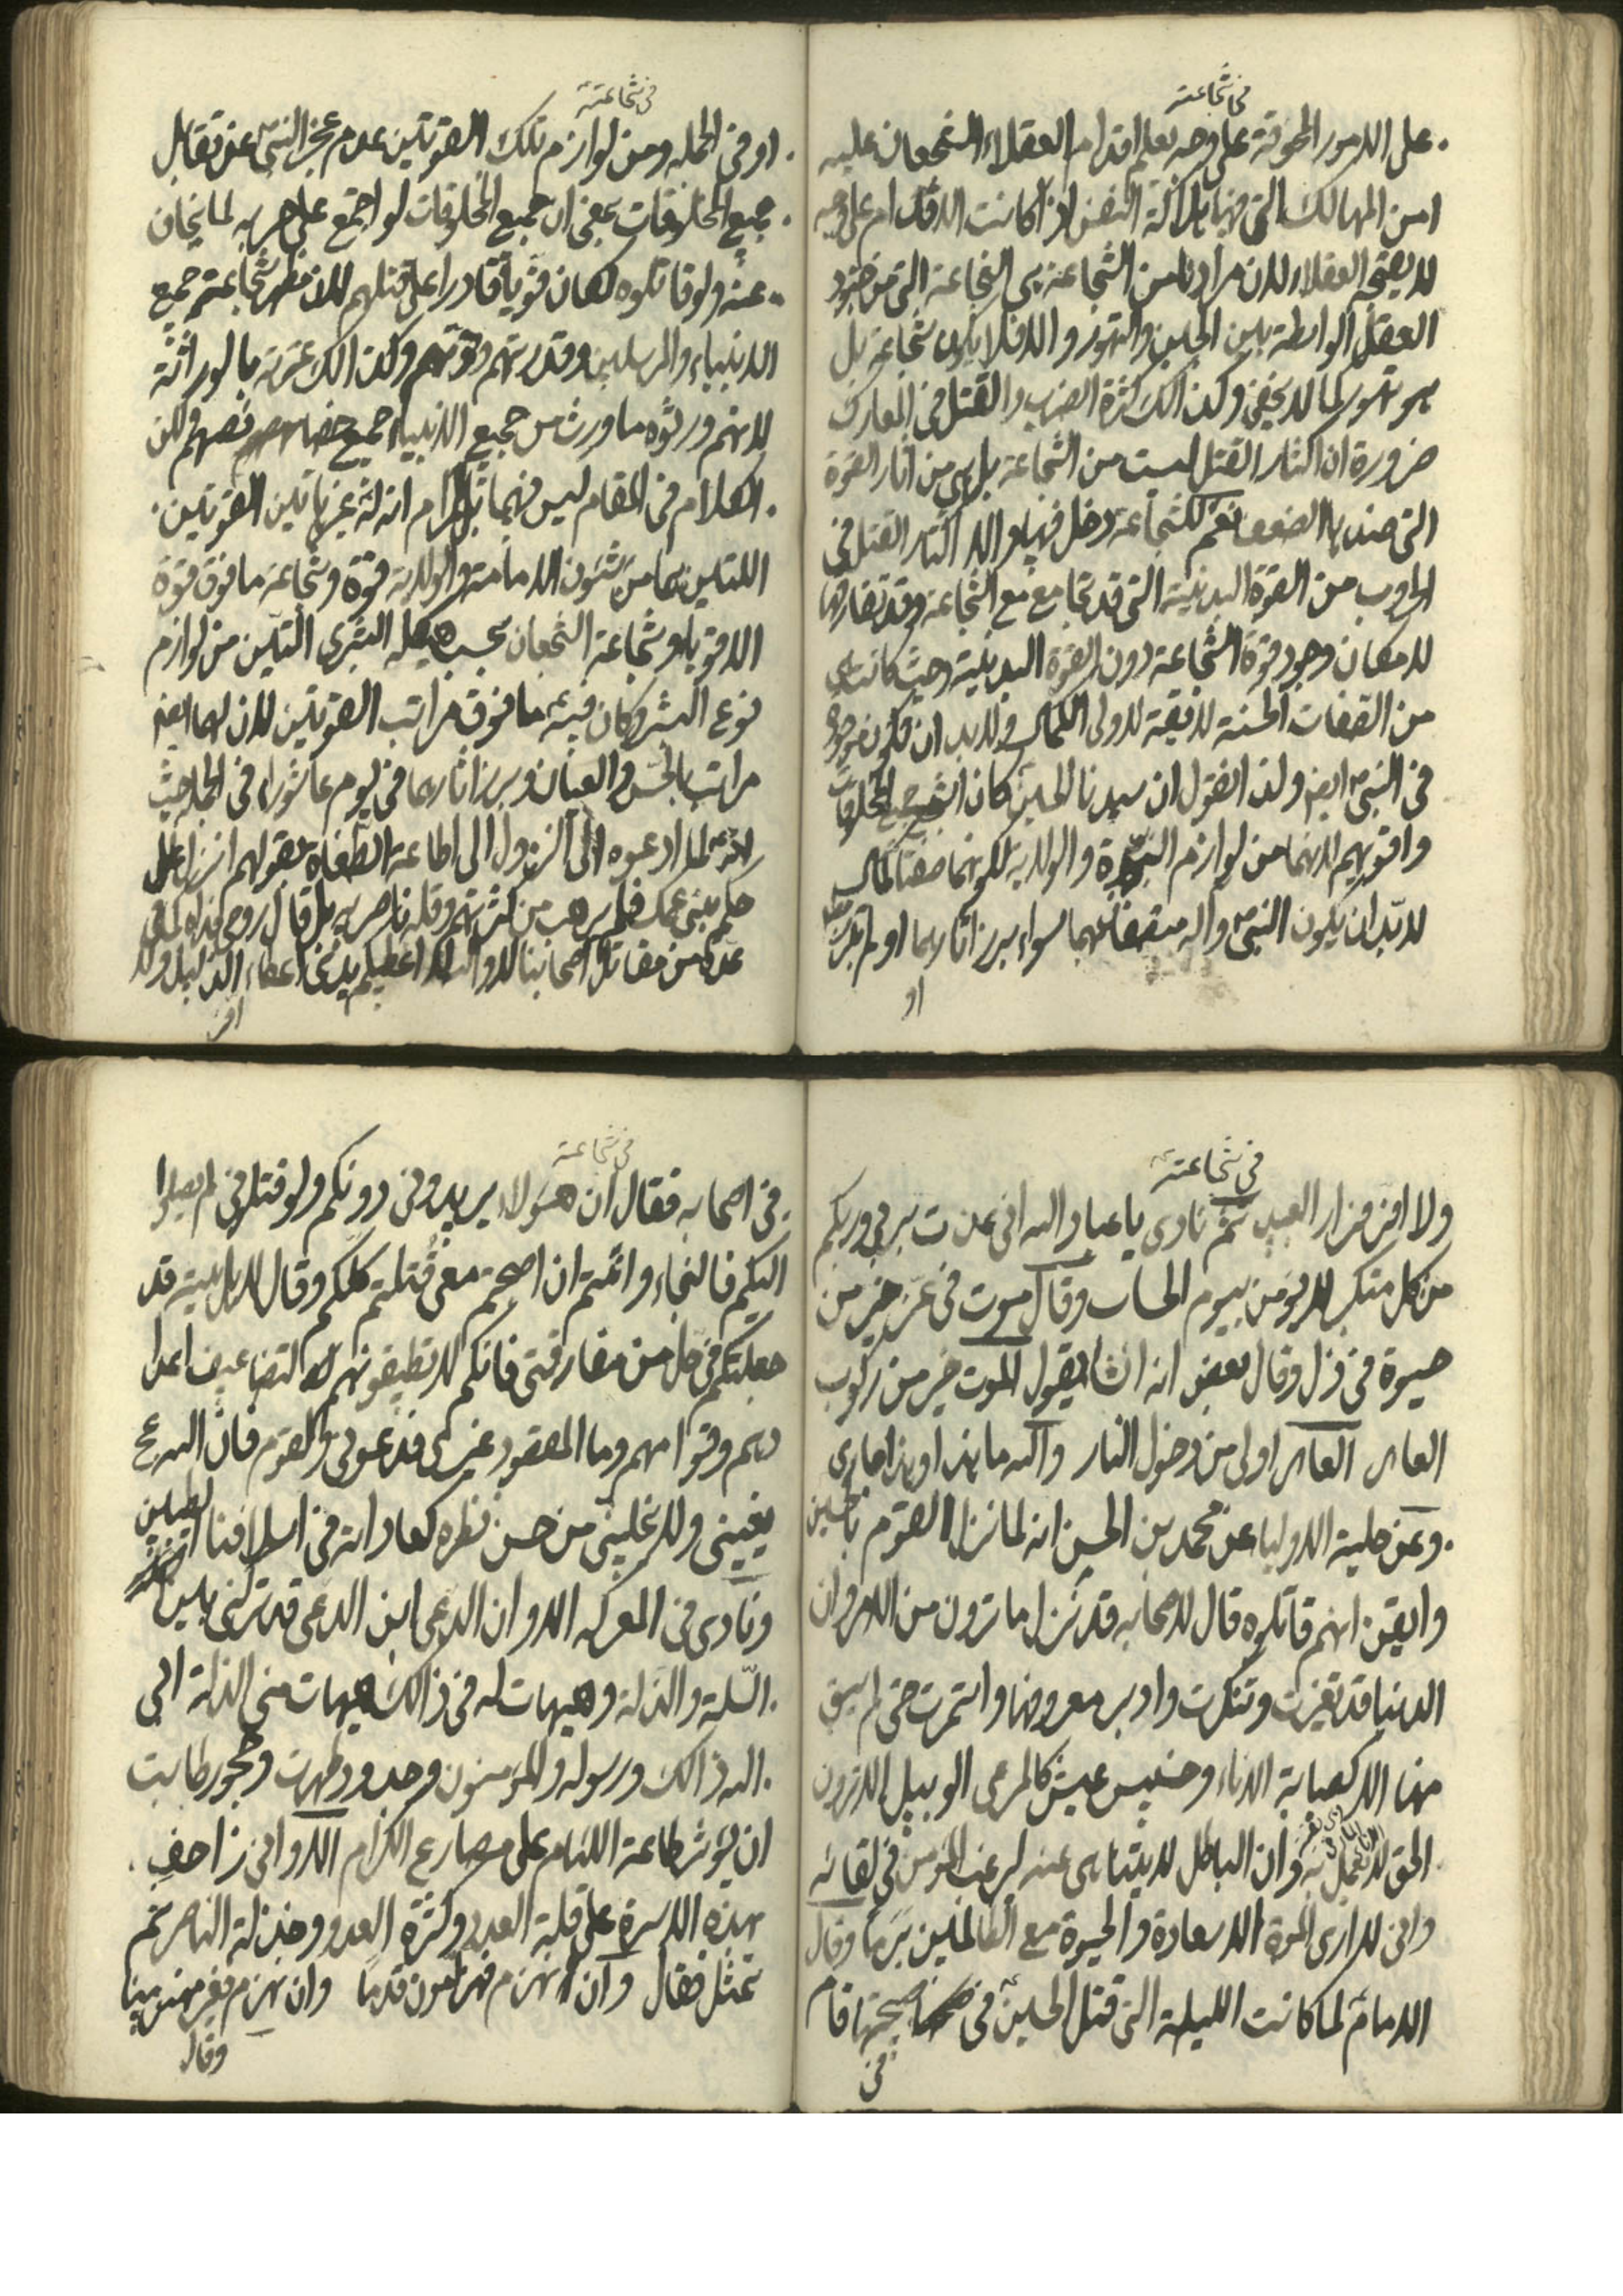 فی شجاعته
علی الامور المخوفة علی وجه یعلم اقدام العقلاء الشجعان علیه
امن المهالك التی فیها هلاكة النفس اذا كانت الاقدام علی وجه
لا یصحّحه العقلاء لان مرادنا من الشجاعة هی الشجاعة التی من جنود
العقل الواسطة بین الجبن والتهور والا فلا یكون شجاعة بل
هو تهور كما لا یخفی وكذالك كثرة الضرب والقتل فی المعارك
ضرورة ان اكثار القتل لیست من الشجاعة بل هی من آثار القوة
التی ضدها الضعف نعم للشجاعة دخل فیها والا اكثار القتل فی
الحروب من القوة البدنیة التی قد تجامع مع الشجاعة وقد تفارقها
لامكان وجود قوة الشجاعة دون القوة البدنیة وحیث كانتا
من الصفات الحسنة لایقة لاولی الكمال فلابد ان تكون موجودة
فی النبی ایضا ولذا نقول ان سیدنا الحسین كان اشجع جمیع المخلوقات
واقویهم لانهما من لوازم النبوة والولایة لكونهما صفتا كمال
لابدّ ان یكون النبی واله متصفا بهما سواء برز آثارهما او لم تبرز
او
فی شجاعته
او فی الجمله ومن لوازم تلك القوتین عدم عجز النبی عن تقابل
جمیع المخلوقات بمعنی ان جمیع المخلوقات لو اجتمع علی حربه لما یخاف
عنه ولو قاتلوه لكان قویا قادرا علی قتلهم لان مظهر شجاعته جمیع
الانبیاء والمرسلین وقدرتهم وقوتهم وكذالك عترته بالوراثة
لانهم ورثوه ما ورث من جمیع الانبیاء جمیع خصایصهم ولكن
الكلام فی المقام لیس فیهما بل المرام انه له غیر هاتین القوتین
اللتین هما من شئون الامامة والولایة قوة وشجاعة ما فوق قوة
الاقویاء وشجاعة الشجعان بحسب هیكله البشری اللتین من لوازم
نوع البشر وكان فیه ما فوق مراتب القوتین لان لهما ایضا
مراتب بالحس والعیان وبرز آثارهما فی یوم عاشوراء فی الجمله حیث
انه لما دعوه الی النزول الی اطاعة الطغاة بقولهم انزل علی
حكم بنی عمك فلم یرهب من كثرتهم وقلة ناصریه بل قال روحی فداه كما فی
عدة من مقاتل اصحابنا لا والله لا اعطیكم بیدی اعطاء الذلیل ولا
افر
فی شجاعته
ولا افر فرار العبید ثم نادی یا عباد الله انی عذت بربی وربكم
من كل متكبر لا یؤمن بیوم الحساب وقال موت فی عز خیر من
حیوة فی ذل وقال بعض انه انشا یقول الموت خیر من ركوب
العار العار اولی من دخول النار والله ما هذا وهذا جاری
وعن حلیة الاولیاء عن محمد بن الحسن انه لما نزل القوم بالحسین
وایقن انهم قاتلوه قال لاصحابه قد نزل ما ترون من الامر وان
الدنیا قد تغیرت وتنكرت وادبر معروفها واستمرت حتی لم یبق
منها الا كصبابة الاناء وخسیس عیش كالمرعی الوبیل الا ترون
الحق لا یعمل به وان الباطل لا یتناهی عنه لیرغب المؤمن فی لقائه
وانی لا اری الموت الا سعادة والحیوة مع الظالمین برما وقال
الامام لما كانت اللیلة التی قتل الحسین فی صبحتها قام
فی
فی شجاعته
فی اصحابه فقال ان هؤلاء یریدونی دونكم ولو قتلونی لم یصلوا
الیكم فالنجاء وانتم ان اصبحتم معی قتلتم كلكم وقال لاهل بیته قد
جعلتكم فی حل من مفارقتی فانكم لا تطیقونهم لتضاعیف اعدا
دهم وقواهم وما المقصود غیری فدعونی والقوم فان الله عج
یعیننی ولا یخلینی من حسن نظره كعاداته فی اسلافنا الطیبین
ونادی فی المعركه الا وان الدعی ابن الدعی قد تركنی بین
السلة والذلة وهیهات له فی ذالك هیهات منی الذلة ابی
الله ذالك ورسوله والمؤمنون وجدود طهرت وحجور طابت
ان یؤثر طاعة اللئام علی مصارع الكرام الا وانی زاحف
بهذه الاسرة علی قلة العدد وكثرة العدو وخذلة الناصر ثم
تمثل فقال وان نهزم فهزامون قدما وان نهزم فغیر مهزمینا
وقال